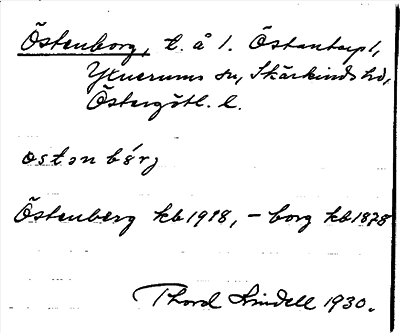 Östenborg, t. å 1. Östantorp 1,
Yxnerums sn, Skärkinds hd,
Östergötl. l.
ostənbárj
Östenberg kb 1918, – borg kb 1878
Thord Lindell 1930.